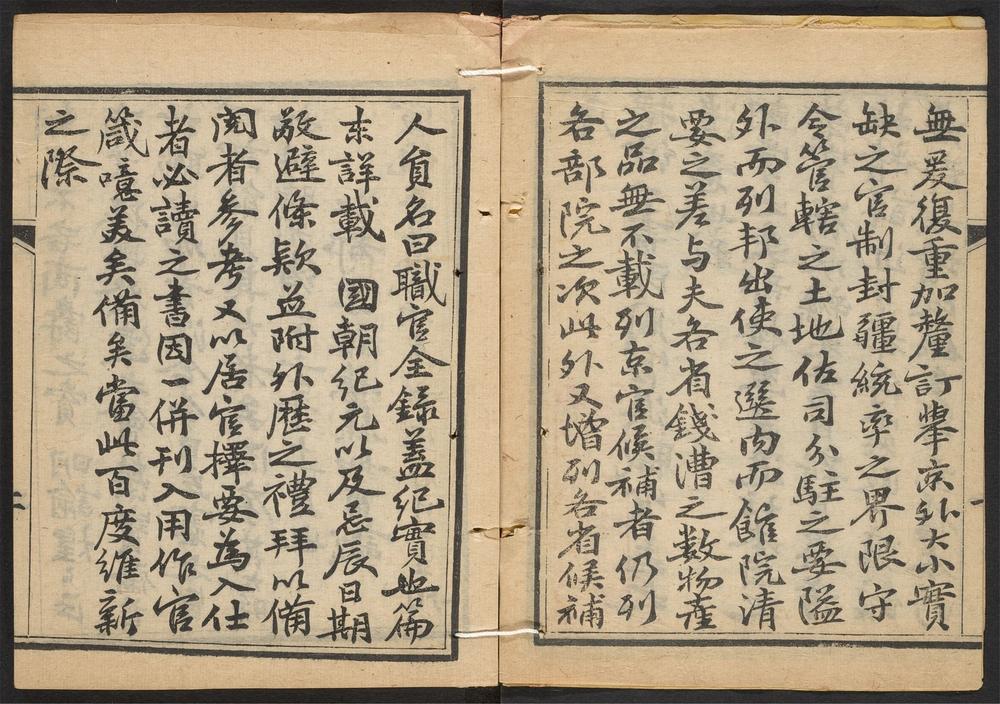 無爰復重加釐訂舉京外大小實
缺之官制封疆統率之界限守
令管轄之土地佐司分駐之要隘
外而列邦出使之選內而館院清
要之差與夫各省錢漕之数物產
之品無不載列京官候補者仍列
各部院之次此外又增列各省候補
人員名曰職官全錄蓋紀實也篇
末詳載 國朝紀元以及忌辰日期
敬避條欵並附外歷之禮拜以備
閱者參考又以居官擇要為入仕
者必讀之書因一併刊入用作官
箴噫美矣備矣當此百度維新
之際
一
二